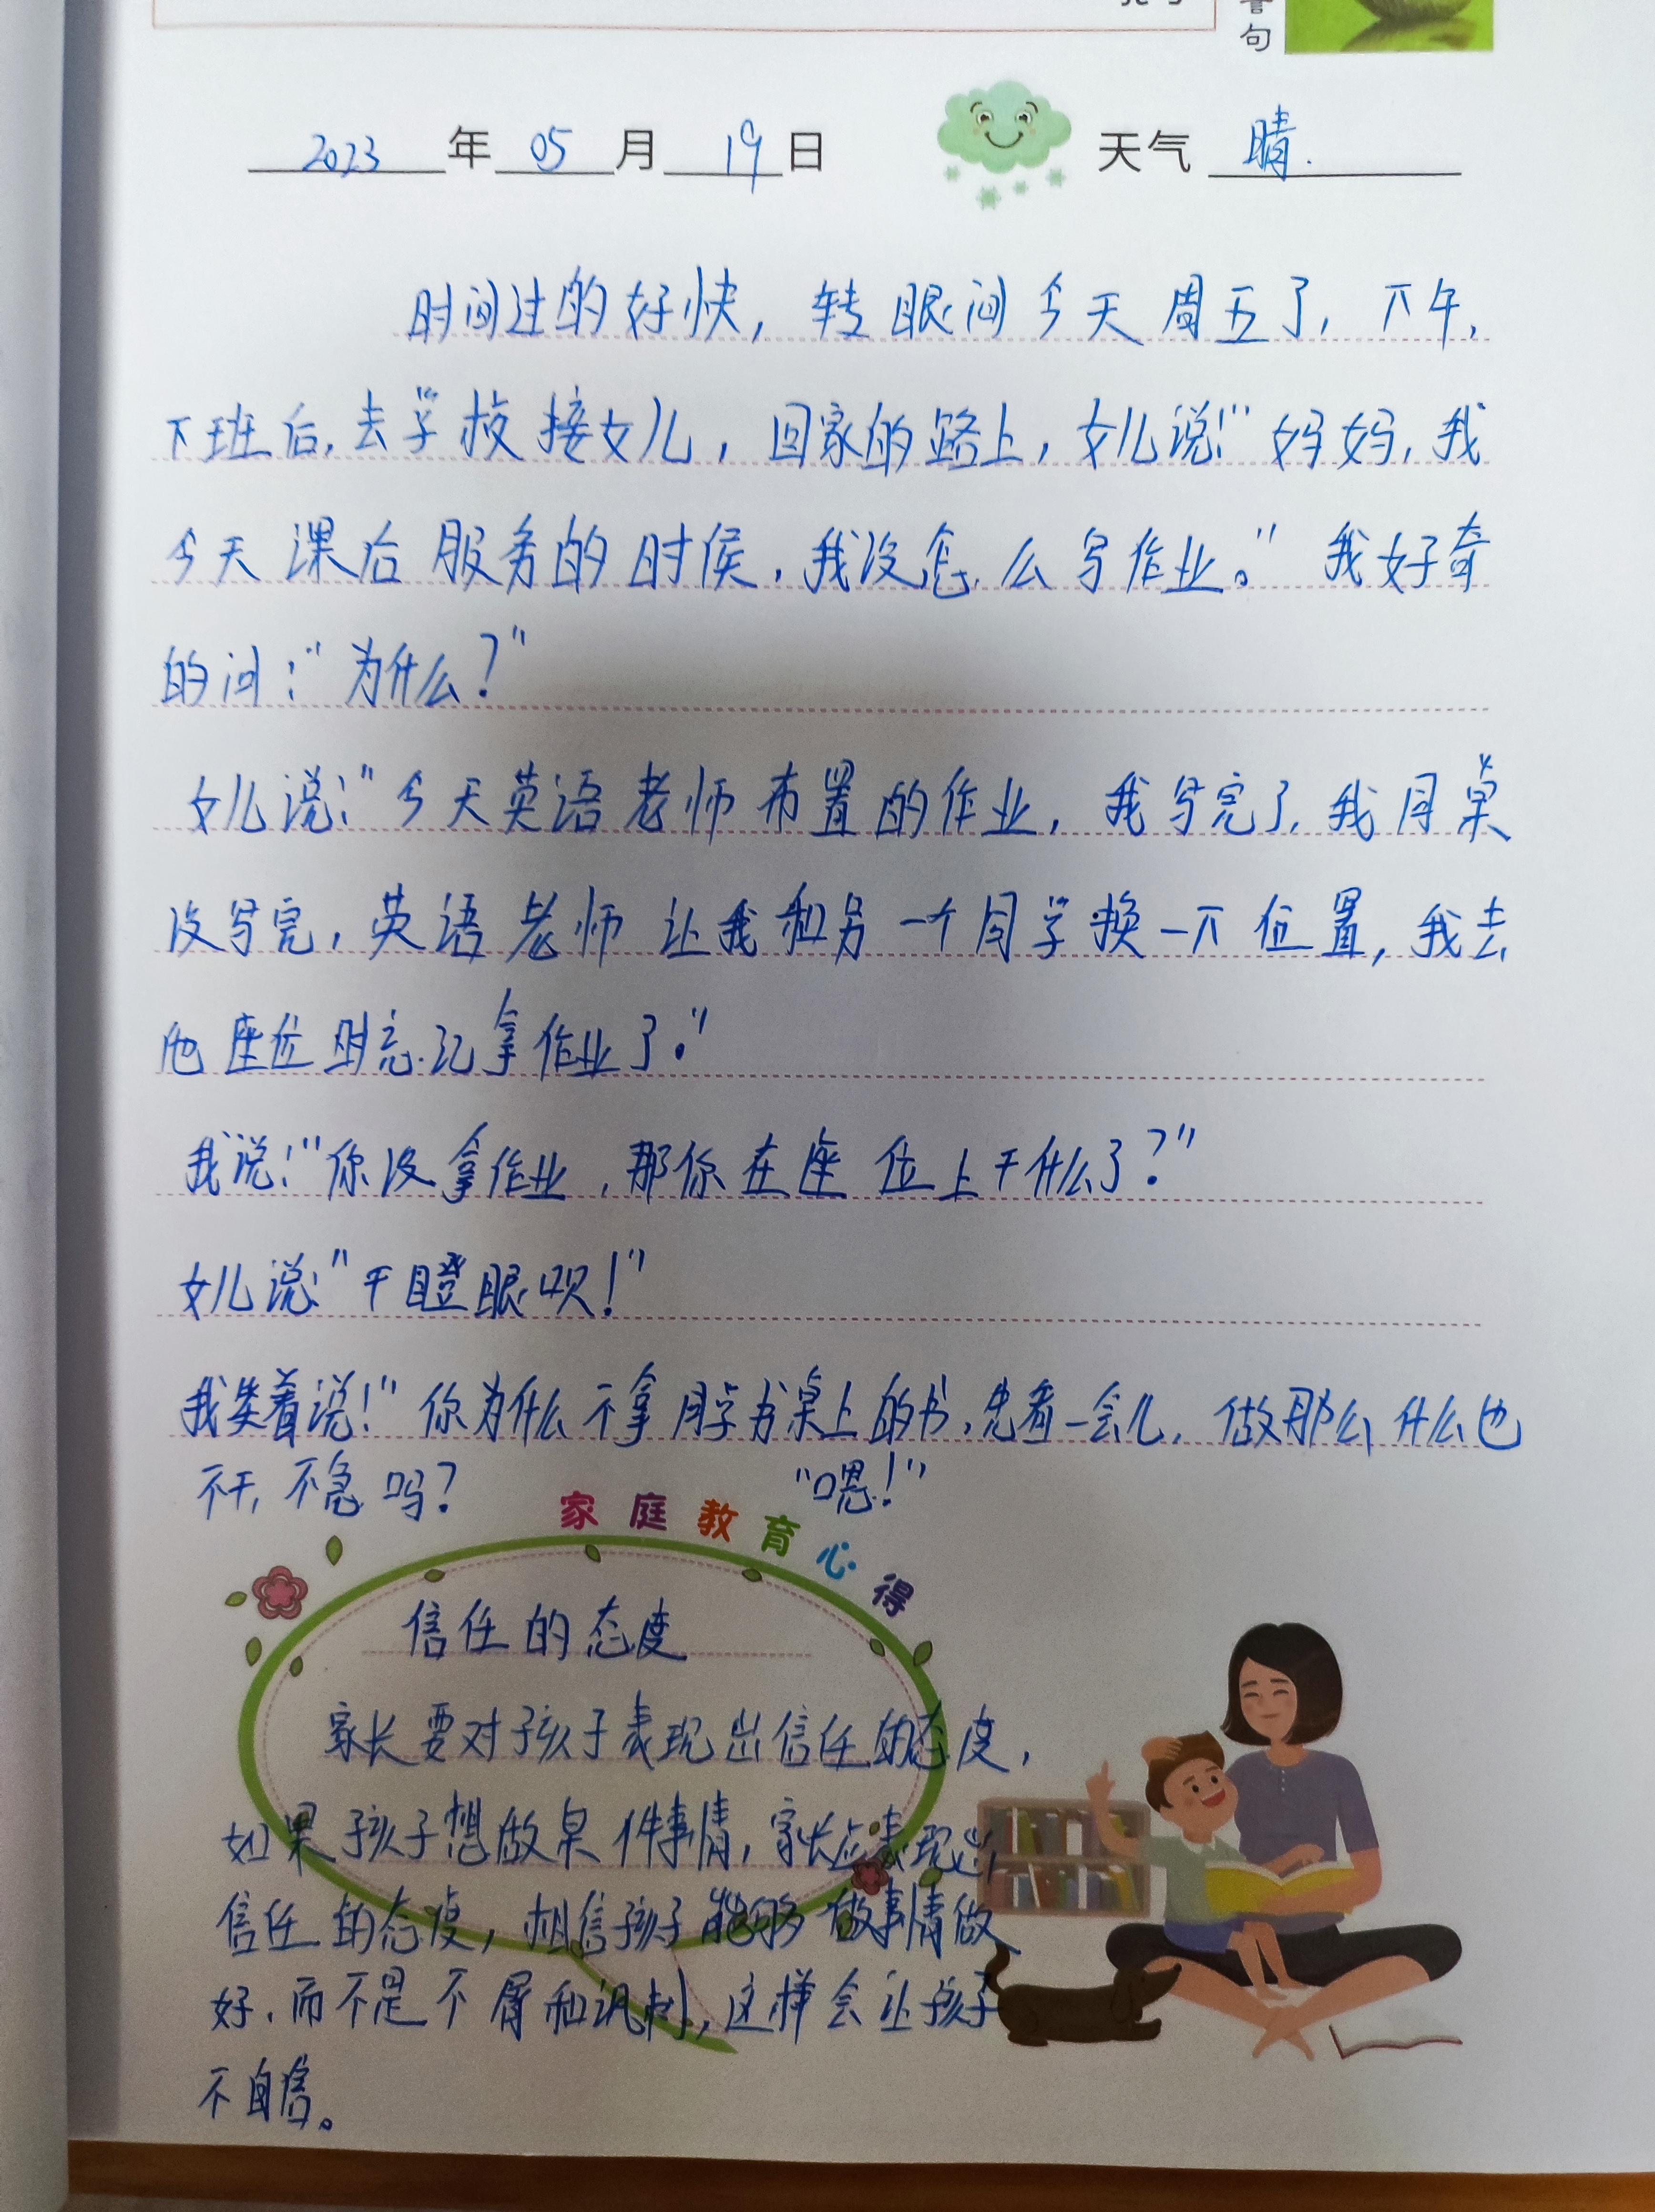 句
2023年05月19日 天气 晴.
时间过的好快，转眼间今天周五了，下午，
下班后，去学校接女儿，回家的路上，女儿说："妈妈，我
今天课后服务的时侯，我没怎么写作业。"我好奇
的问："为什么？"
女儿说："今天英语老师布置的作业，我写完了，我同桌
没写完，英语老师让我和另一个同学换一下位置，我去
他座位时忘记拿作业了。"
我说："你没拿作业，那你在座位上干什么了？"
女儿说："干瞪眼呗！"
我笑着说："你为什么不拿同学书桌上的书，先看一会儿，做那么什么也
不干，不急吗？ "嗯！"
家庭教育心得
信任的态度
家长要对孩子表现出信任的态度，
如果孩子想做某件事情，家长应表现出
信任的态度，相信孩子能够做事情做
好，而不是不屑和讽刺，这样会让孩子
不自信。